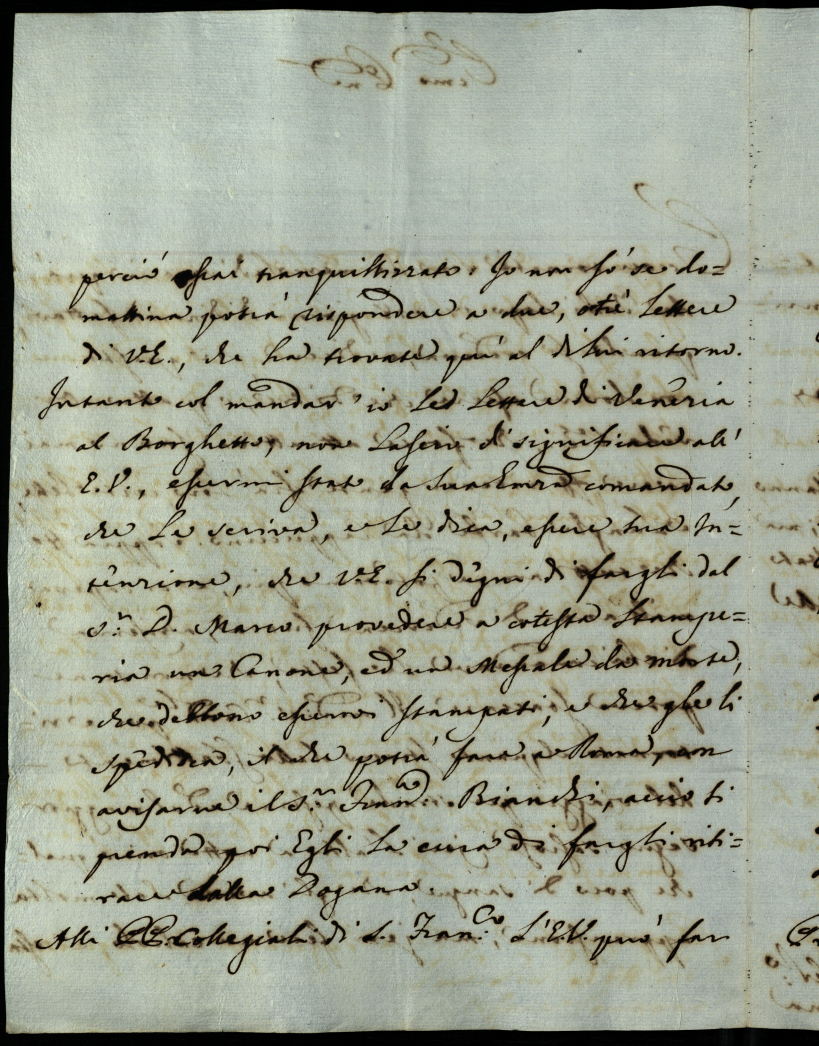 perciò assai tranquillizzato. Io non sò se do=
mattina potrà rispondere a due, o trè Lettere
di V.E., che ha trovate quì al di lui ritorno.
Intanto col mandar' io Le Lettere di Venezia
al Borghetto, non Lascio di significare all'
E.V., essermi stato da Sua Emza comandato,
che Le scriva, e Le dica, essere sua In=
tenzione, che V.E. si degni di fargli dal
S.r D. Marco provedere a cotesta Stampe=
ria un Canone, ed un Messale da morte,
che debbono esservi stampati, e che glie li
spedisca, il che potrà fare a Roma, con
avisarne il S.r Fran.co Bianchi, acciò si
prenda poi Egli La cura di fargli riti=
rare dalla Dogana.
Alli PP. Collegiali di S. Fran.co L'E.V. può far